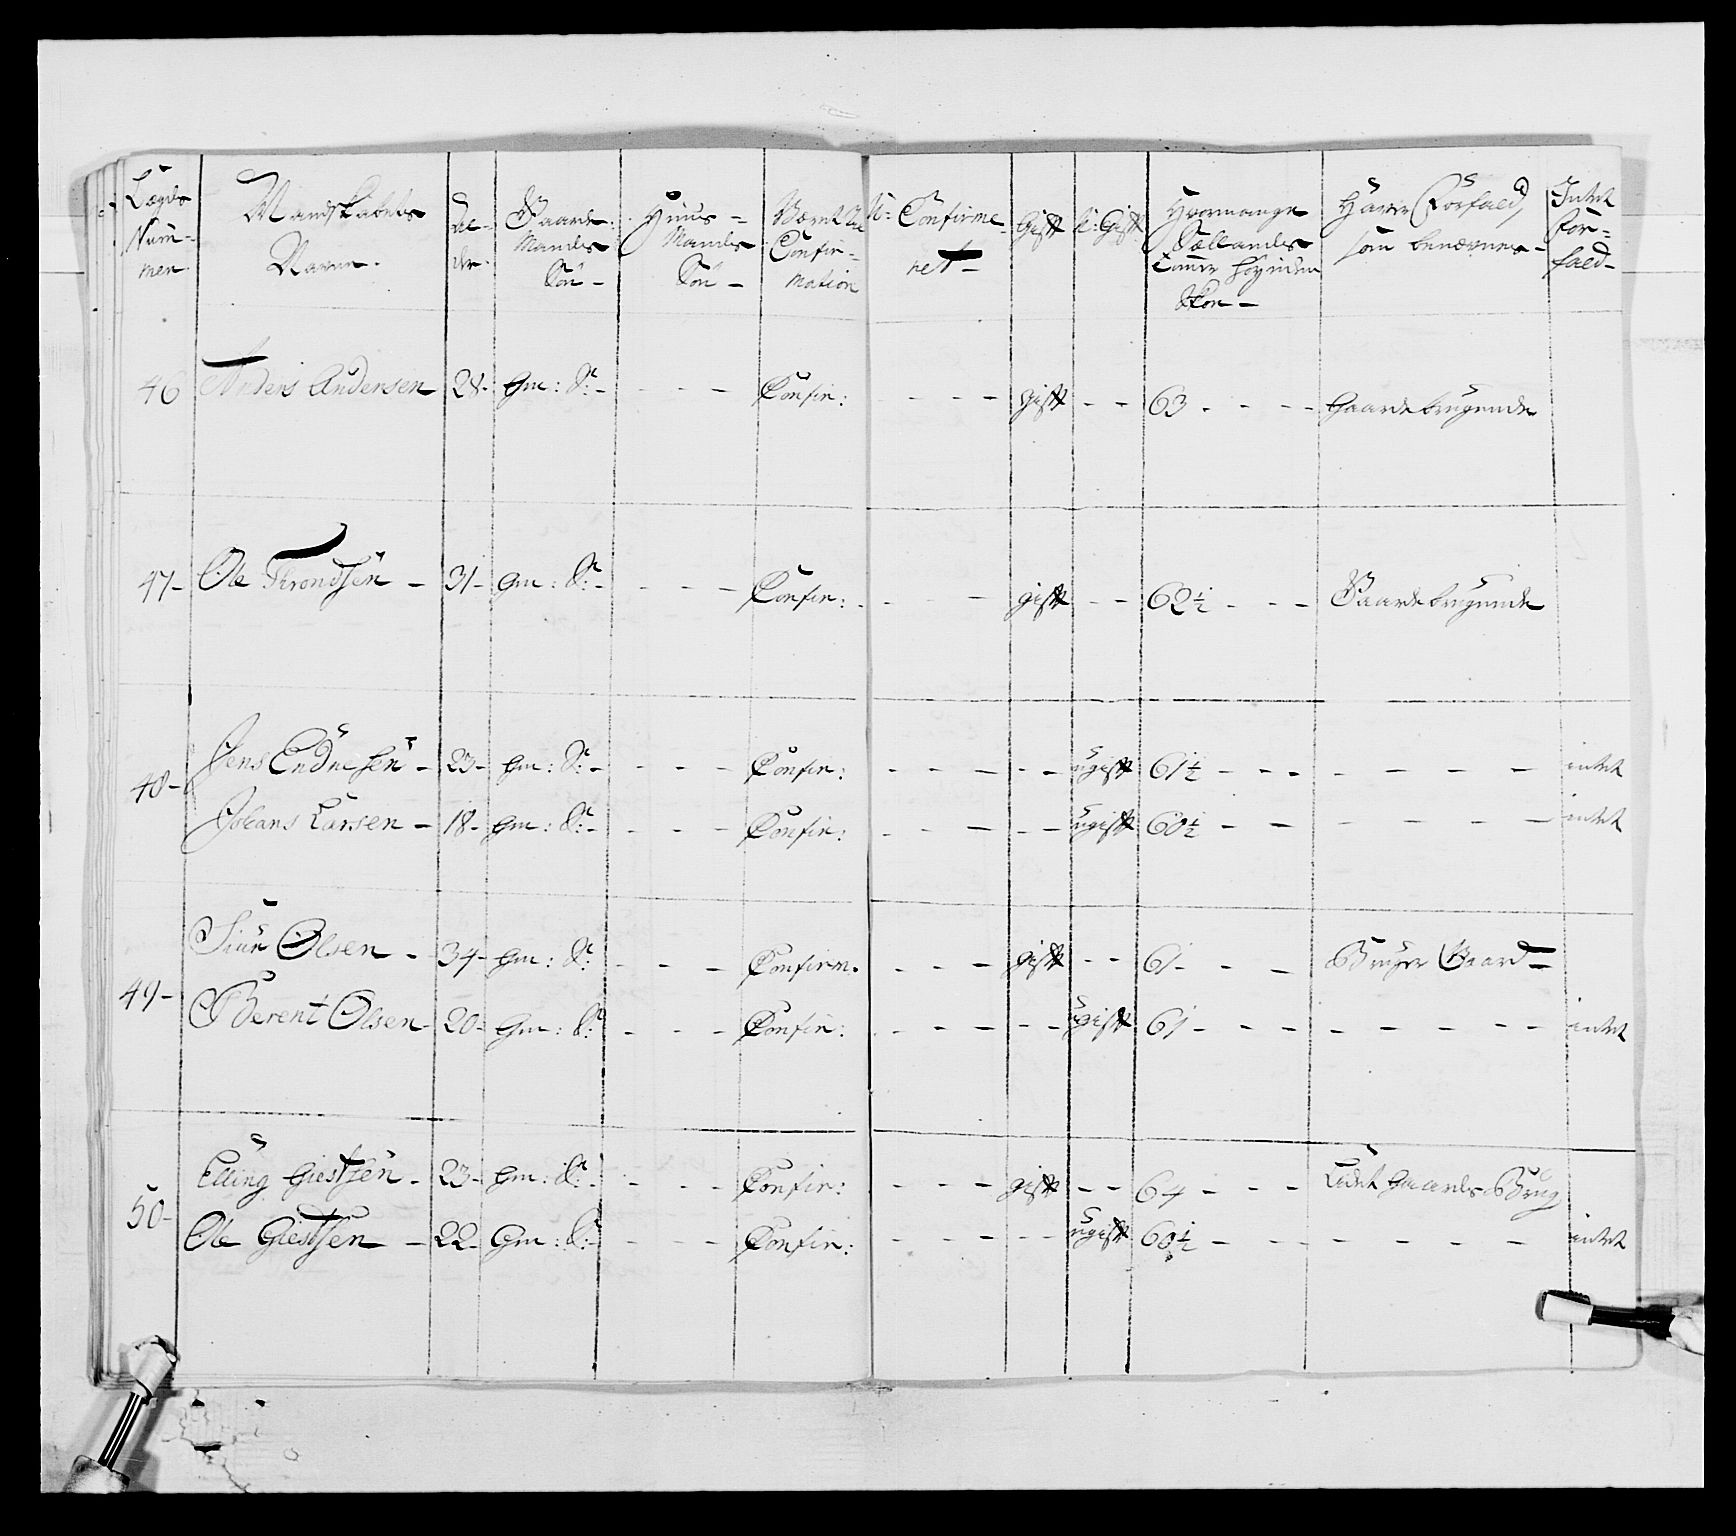 Lægds Num- mer | Mandskabets Navne. | Al- der. | Gaard- Mands Sön - | Huus = Mands Sön - | Været til Confir- mation | U: Confirme- ret - | Gift | U: Gift | Hvormange Siællandske Tomer höy uden Skoe - | Haver Forfald, som benævnes - | Intet for= fald -
46 Anders Andersen 28 - Gm: S: - - - - Confir: - - - - gift - - 63 - - - - Gaardebrugende
47 - Ole Throndsen - 31 - Gm: S: - - - - Confir: - - - gift - - 62½ - - - Gaardebrugende
48 - Jens Endresen - 23 - Gm: S: - - - - Confir: - - - - - - ugift 61½ - - - - - - - intet
Johans Larsen - 18 - Gm: S: - - - - Confir: - - - - - ugift 60½ - - - - - - - intet
49 - Siur Olsen - 34 - Gm: S: - - - Confirm. - - - gift - - 61 - - - Bruger Gaard -
Berent Olsen - 20 - Gm: S: - - - Confir: - - - - - ugift 61 - - - - - - - - intet
50 - Elling Giestsen - 23 - Gm: S: - - - - Confir: - - - - gift - - 64 - - - Lidet Gaards Brug
Ole Giestsen - 22 - Gm: S: - - - - Confir: - - - - - ugift 60½ - - - - - - - intet